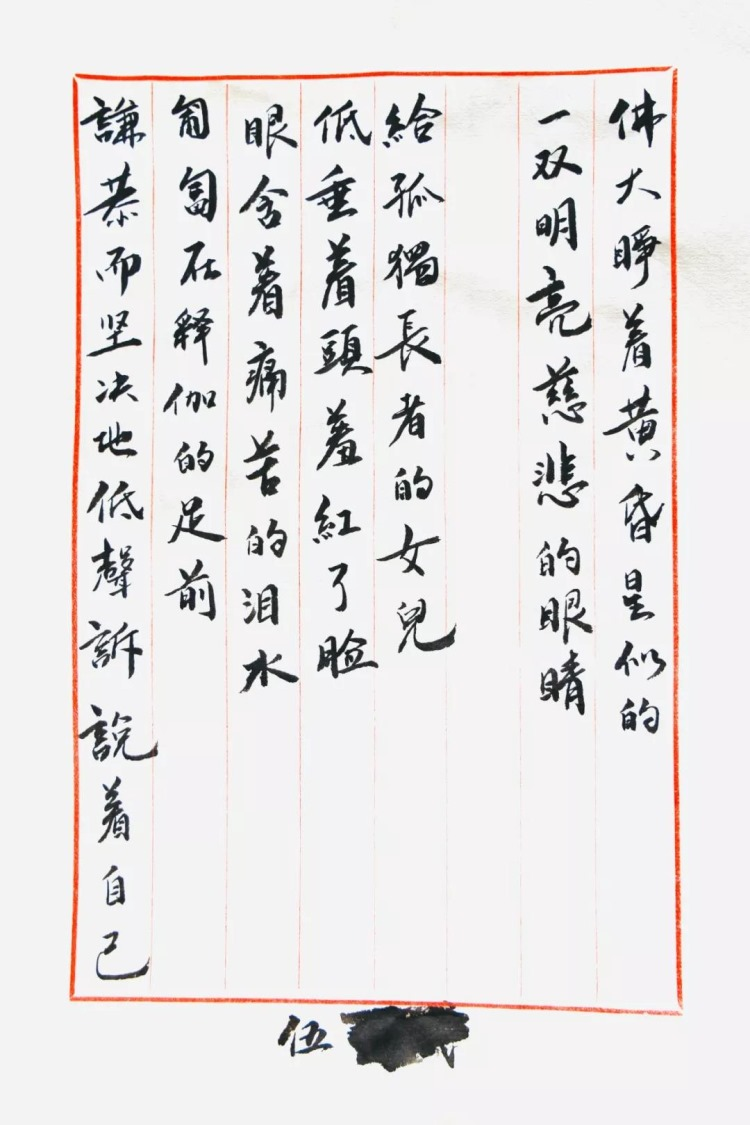 佛大睜着黄昏星似的
一双明亮慈悲的眼睛
給孤獨長者的女兒
低垂着頭羞紅了臉
眼含着痛苦的泪水
匍匐在释伽的足前
謙恭而坚决地低聲訴説着自己
伍